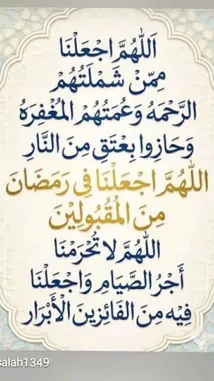 اَللّٰهُمَّ اجْعَلْنَا
مِمَّنْ شَمَلَتْهُمْ
الرَّحْمَهُ وَعَمَّتْهُمُ الْمَغْفِرَهُ
وَحَازُوا بِعِتْقٍ مِنَ النَّارِ
اللّٰهُمَّ اجْعَلْنَا فِي رَمَضَانَ
مِنَ الْمَقْبُولِيْنَ
اللّٰهُمَّ لَا تُحْرَمْنَا
أَجْرُ الصِّيَامِ وَاجْعَلْنَا
فِيْهِ مِنَ الْفَائِزِينَ الْأَبْرَار
salah1349